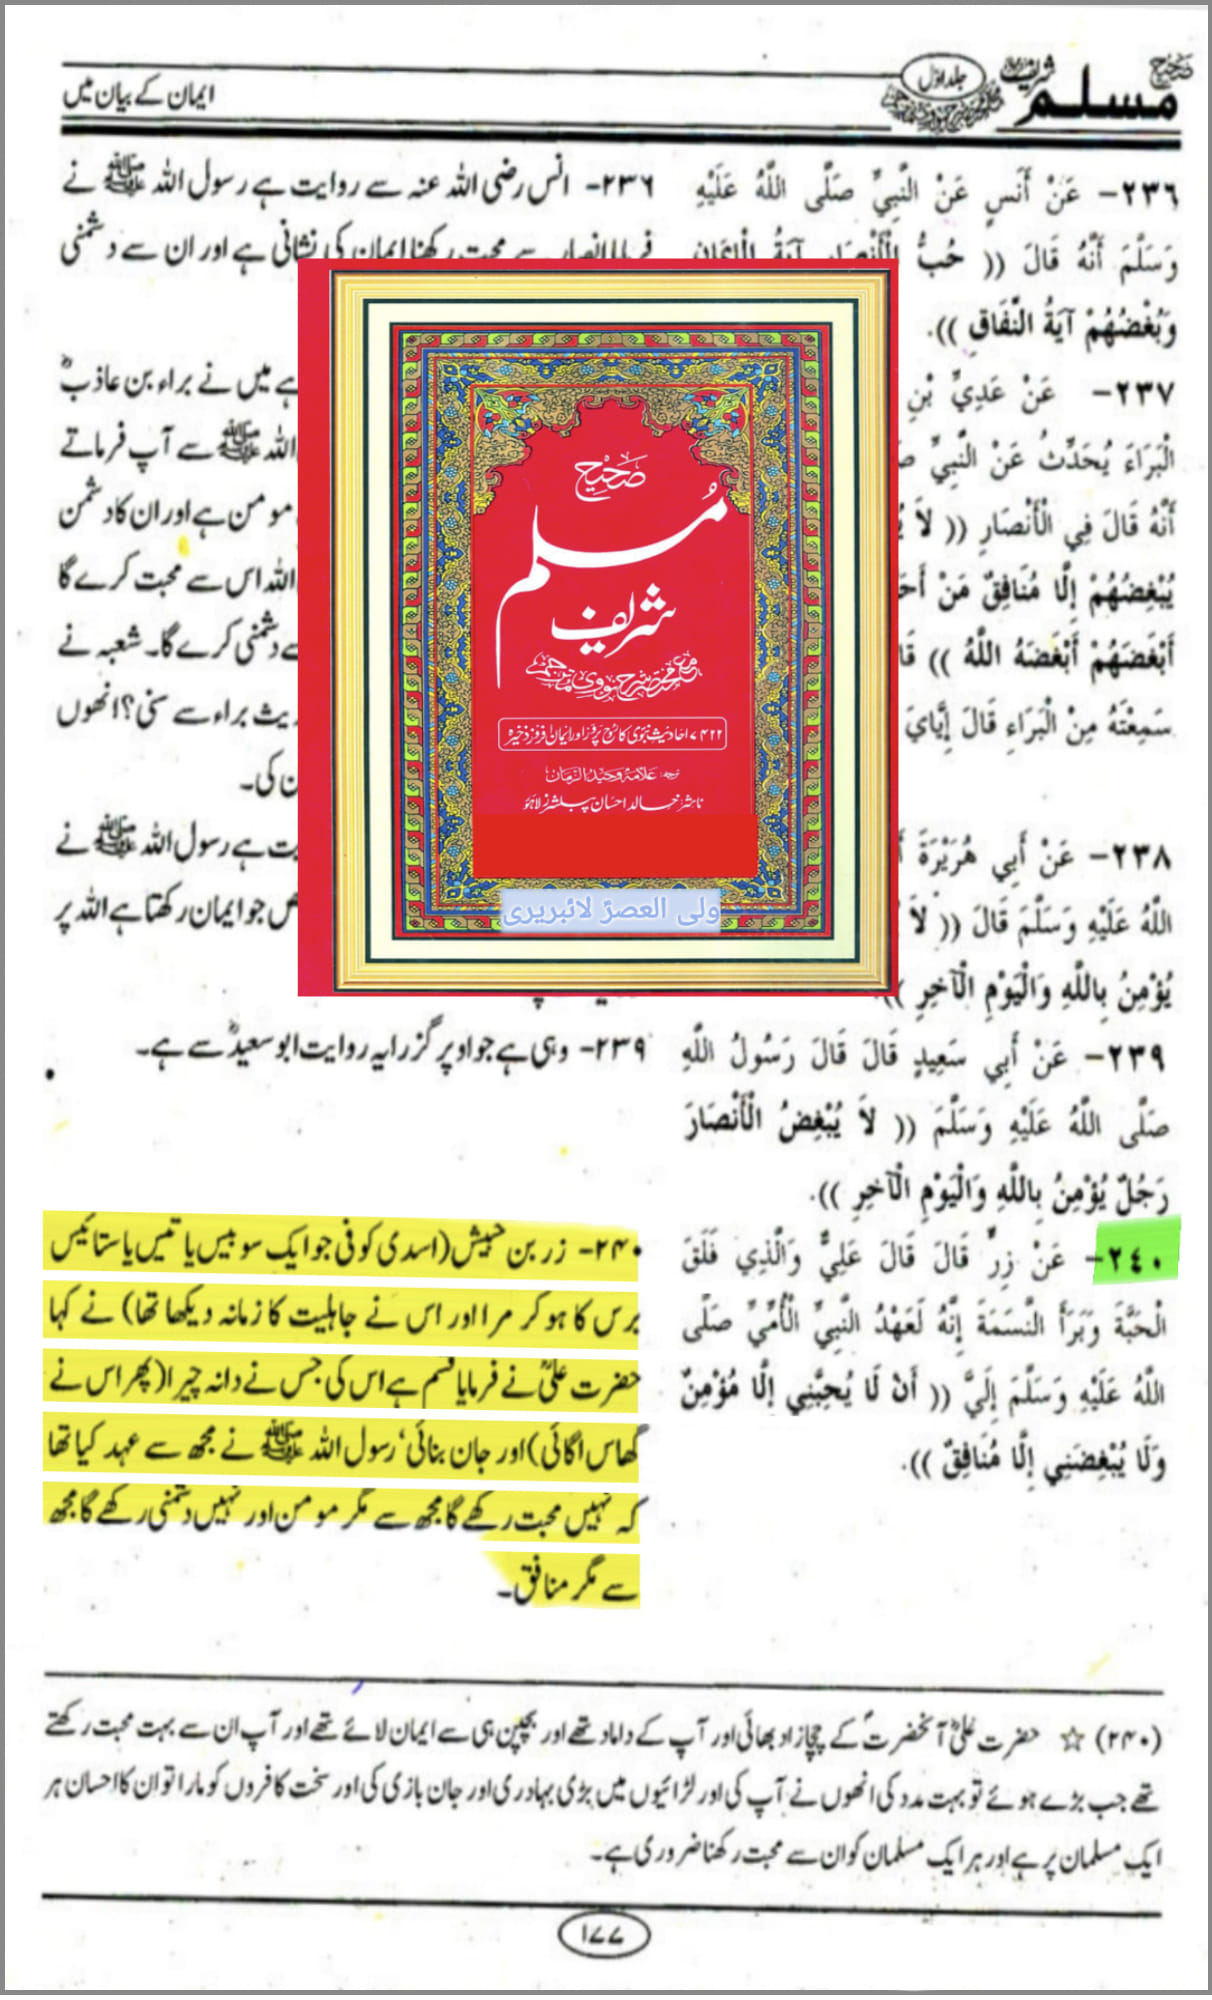 صحیح مسلم شریف
جلد اوّل
ایمان کے بیان میں
٢٣٦- عَنْ أَنَسٍ عَنْ النَّبِيِّ صَلَّى اللَّهُ عَلَيْهِ
وَسَلَّمَ أَنَّهُ قَالَ (( حُبُّ الْأَنْصَارِ آيَةُ الْإِيمَانِ
وَبُغْضُهُمْ آيَةُ النِّفَاقِ )).
٢٣٧- عَنْ عَدِيِّ بْنِ
الْبَرَاءَ يُحَدِّثُ عَنْ النَّبِيِّ
أَنَّهُ قَالَ فِي الْأَنْصَارِ (( لَا
يُبْغِضُهُمْ إِلَّا مُنَافِقٌ مَنْ
أَبْغَضَهُمْ أَبْغَضَهُ اللَّهُ ))
سَمِعْتَهُ مِنْ الْبَرَاءِ قَالَ إِيَّايَ
٢٣٨- عَنْ أَبِي هُرَيْرَةَ
اللَّهُ عَلَيْهِ وَسَلَّمَ قَالَ (( لَا
يُؤْمِنُ بِاللَّهِ وَالْيَوْمِ الْآخِرِ )).
٢٣٩- عَنْ أَبِي سَعِيدٍ قَالَ قَالَ رَسُولُ اللَّهِ
صَلَّى اللَّهُ عَلَيْهِ وَسَلَّمَ (( لَا يُبْغِضُ الْأَنْصَارَ
رَجُلٌ يُؤْمِنُ بِاللَّهِ وَالْيَوْمِ الْآخِرِ )).
٢٤٠- عَنْ زِرٍّ قَالَ قَالَ عَلِيٌّ وَالَّذِي فَلَقَ
الْحَبَّةَ وَبَرَأَ النَّسَمَةَ إِنَّهُ لَعَهْدُ النَّبِيِّ الْأُمِّيِّ صَلَّى
اللَّهُ عَلَيْهِ وَسَلَّمَ إِلَيَّ (( أَنْ لَا يُحِبَّنِي إِلَّا مُؤْمِنٌ
وَلَا يُبْغِضَنِي إِلَّا مُنَافِقٌ )).
۲۳۶- انس رضی اللہ عنہ سے روایت ہے رسول اللہ ﷺ نے
فرمایا انصار سے محبت رکھنا ایمان کی نشانی ہے اور ان سے دشمنی
ہے میں نے براء بن عاذبؓ
اللہ ﷺ سے آپ فرماتے
مومن ہے اور ان کا دشمن
اللہ اس سے محبت کرے گا
دشمنی کرے گا۔ شعبہ نے
براء سے سنی؟ انھوں
کی۔
ہے رسول اللہ ﷺ نے
جو ایمان رکھتا ہے اللہ پر
۲۳۹- وہی ہے جو اوپر گزرا یہ روایت ابو سعیدؓ سے ہے۔
۲۴۰- زر بن حبیش (اسدی کوفی جو ایک سو بیس یا تیس یا ستائیس
برس کا ہو کر مرا اور اس نے جاہلیت کا زمانہ دیکھا تھا) نے کہا
حضرت علیؓ نے فرمایا قسم ہے اس کی جس نے دانہ چیرا (پھر اس نے
گھاس اگائی) اور جان بنائی، رسول اللہ ﷺ نے مجھ سے عہد کیا تھا
کہ نہیں محبت رکھے گا مجھ سے مگر مومن اور نہیں دشمنی رکھے گا مجھ
سے مگر منافق۔
صحیح
مسلم
شریف
مع مختصر شرح نووی مترجم
۷۴۲۲ احادیث نبوی کا روح پرور اور ایمان افروز ذخیرہ
ترجمہ: علامہ وحید الزمان
ناشر: خالد احسان پبلشرز لاہور
ولی العصرؑ لائبریری
(۲۴۰) ☆ حضرت علیؓ آنحضرتؐ کے چچازاد بھائی اور آپ کے داماد تھے اور بچپن ہی سے ایمان لائے تھے اور آپ ان سے بہت محبت رکھتے
تھے جب بڑے ہوئے تو بہت مدد کی انھوں نے آپ کی اور لڑائیوں میں بڑی بہادری اور جان بازی کی اور سخت کافروں کو مارا تو ان کا احسان ہر
ایک مسلمان پر ہے اور ہر ایک مسلمان کو ان سے محبت رکھنا ضروری ہے۔
۱۷۷